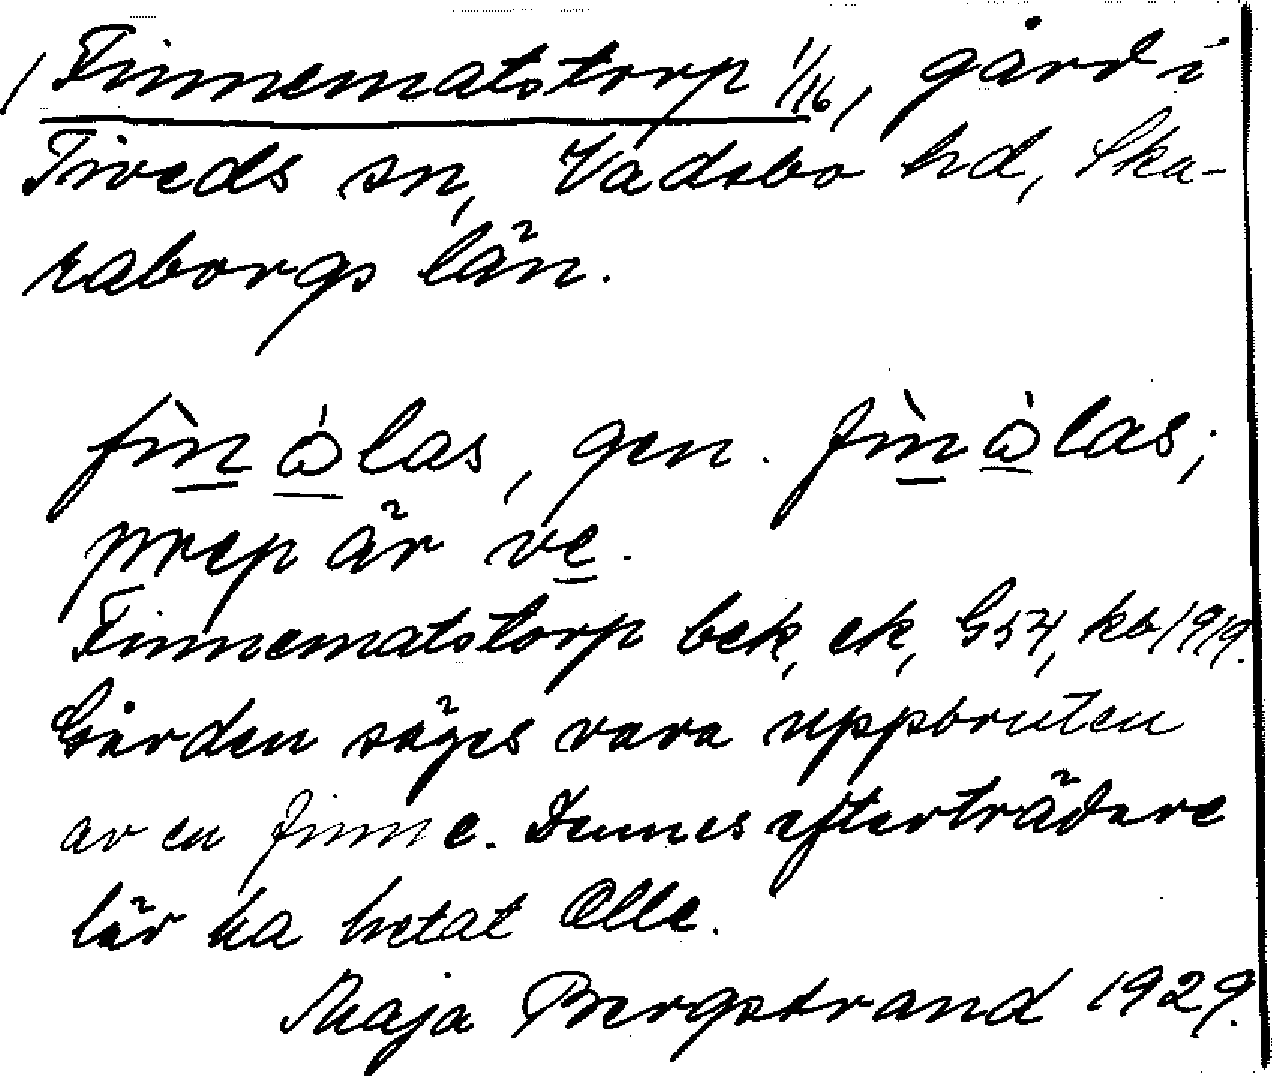 / Finnematstorp 1/16, gård i
Tiveds sn, Vadsbo hd, Ska-
raborgs län.
fìn òlas, gen. fìn òlas;
prep är ve.
Finnematstorp bek, ek, G54, kb 1919.
Gården säges vara uppbruten
av en finne. Dennes efterträdare
lär ha hetat Olle.
Maja Bergstrand 1929.